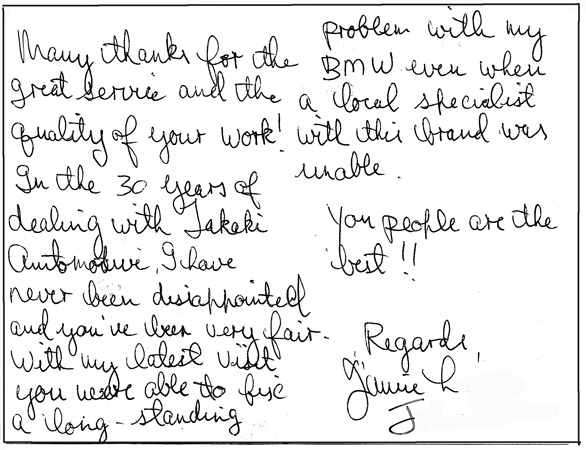 Many thanks for the
great service and the
quality of your work!
In the 30 years of
dealing with Takaki
Automotive, I have
never been disappointed
and you've been very fair.
With my latest visit
you were able to fix
a long-standing
problem with my
BMW even when
a local specialist
with this brand was
unable.
You people are the
best!!
Regards,
L
J